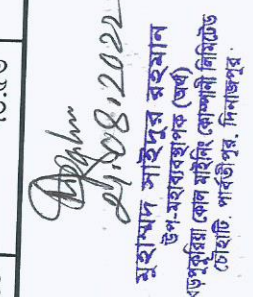 ২১.08.2022
মুহাম্মদ সাইদুর রহমান
উপ-মহাব্যবস্থাপক (অর্থ)
বড়পুকুরিয়া কোল মাইনিং কোম্পানী লিমিটেড
চৌহাটি, পার্বতীপুর, দিনাজপুর।